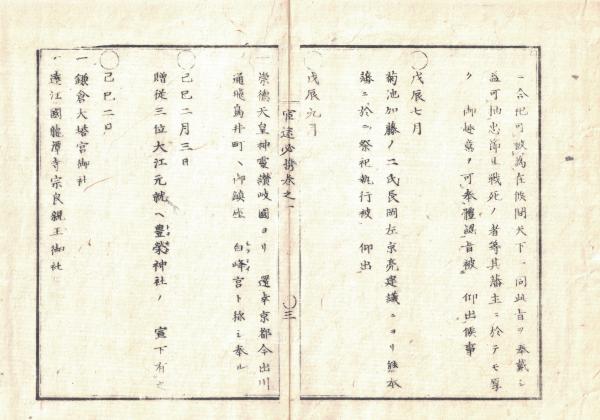 合祀可被為在候間天下一同此旨ヲ奉戴シ
益可抽忠節且戦死ノ者等其藩主ニ於テモ厚
ク 御趣意ヲ可奉體認旨被 仰出候事
〇戊辰七月
菊池加藤ノ二氏長岡左京亮建議ニヨリ熊本
藩ニ於テ祭祀執行被 仰出
〇戊辰九月
官途必携巻之一
〇三
一崇徳天皇神霊讃岐國ヨリ 還幸京都今出川
通飛鳥井町ヘ御鎮座 白峰宮ト称シ奉ル
〇己巳二月三日
贈従三位大江元就ヘ豊榮神社ノ 宣下有之
〇己巳二日
一鎌倉大塔宮御社
一遠江國龍潭寺宗良親王御社